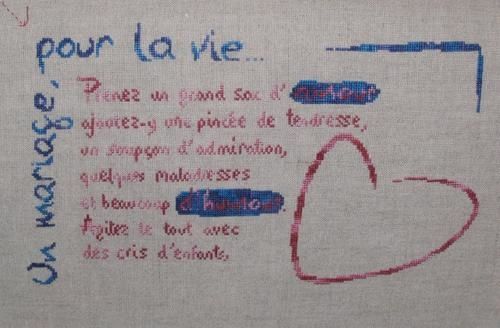 Un mariage,
pour la vie...
Prenez un grand sac d'
ajoutez-y une pincée de tendresse,
un soupçon d'admiration,
quelques maladresses
et beaucoup d'humour.
Agitez le tout avec
des cris d'enfants,